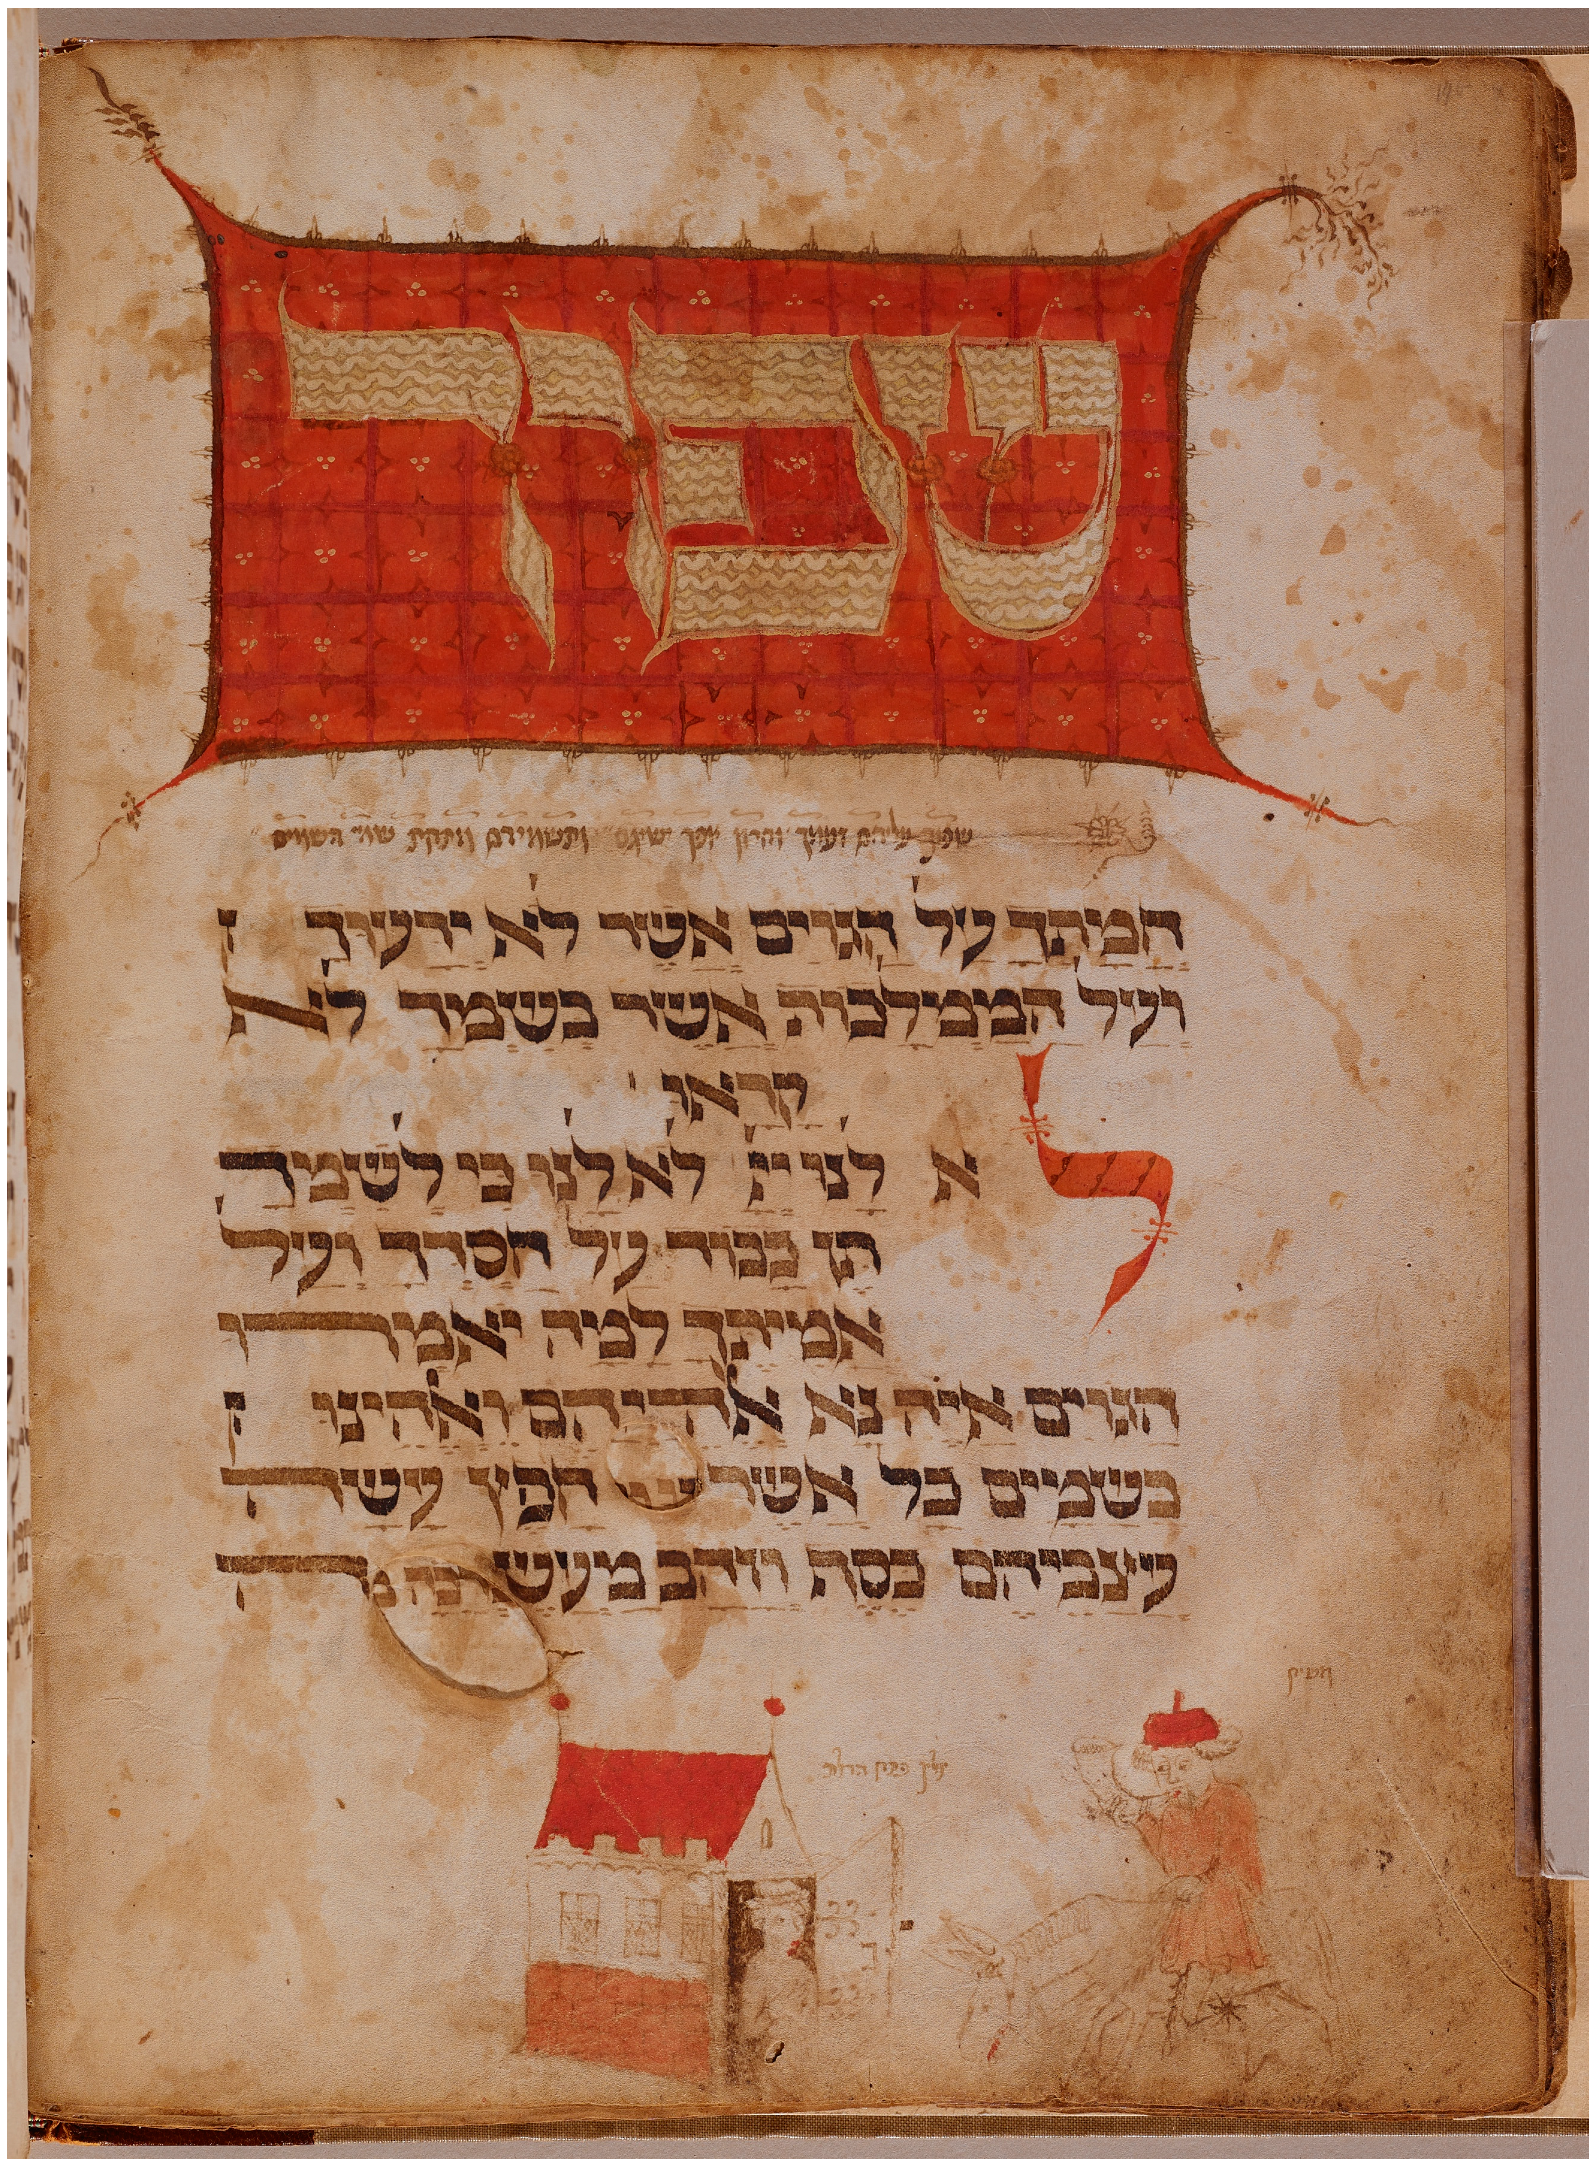 שפוך
שפוך עליהם זעמך וחרון אפך ישיגם ותשמידם מתחת שמי השמים
חמתך על הגוים אשר לא ידעוך
ועל הממלכות אשר בשמך לא
קראו
לא לנו ייי לא לנו כי לשמך
תן כבוד על חסדך ועל
אמיתך למה יאמרו
הגוים איה נא אלהיהם ואלהינו
בשמים כל אשר חפץ עשה
עצביהם כסף וזהב מעשה
משיח